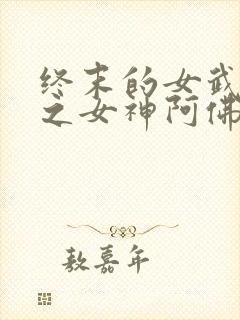 终末的女武
之女神阿佛
敖嘉年